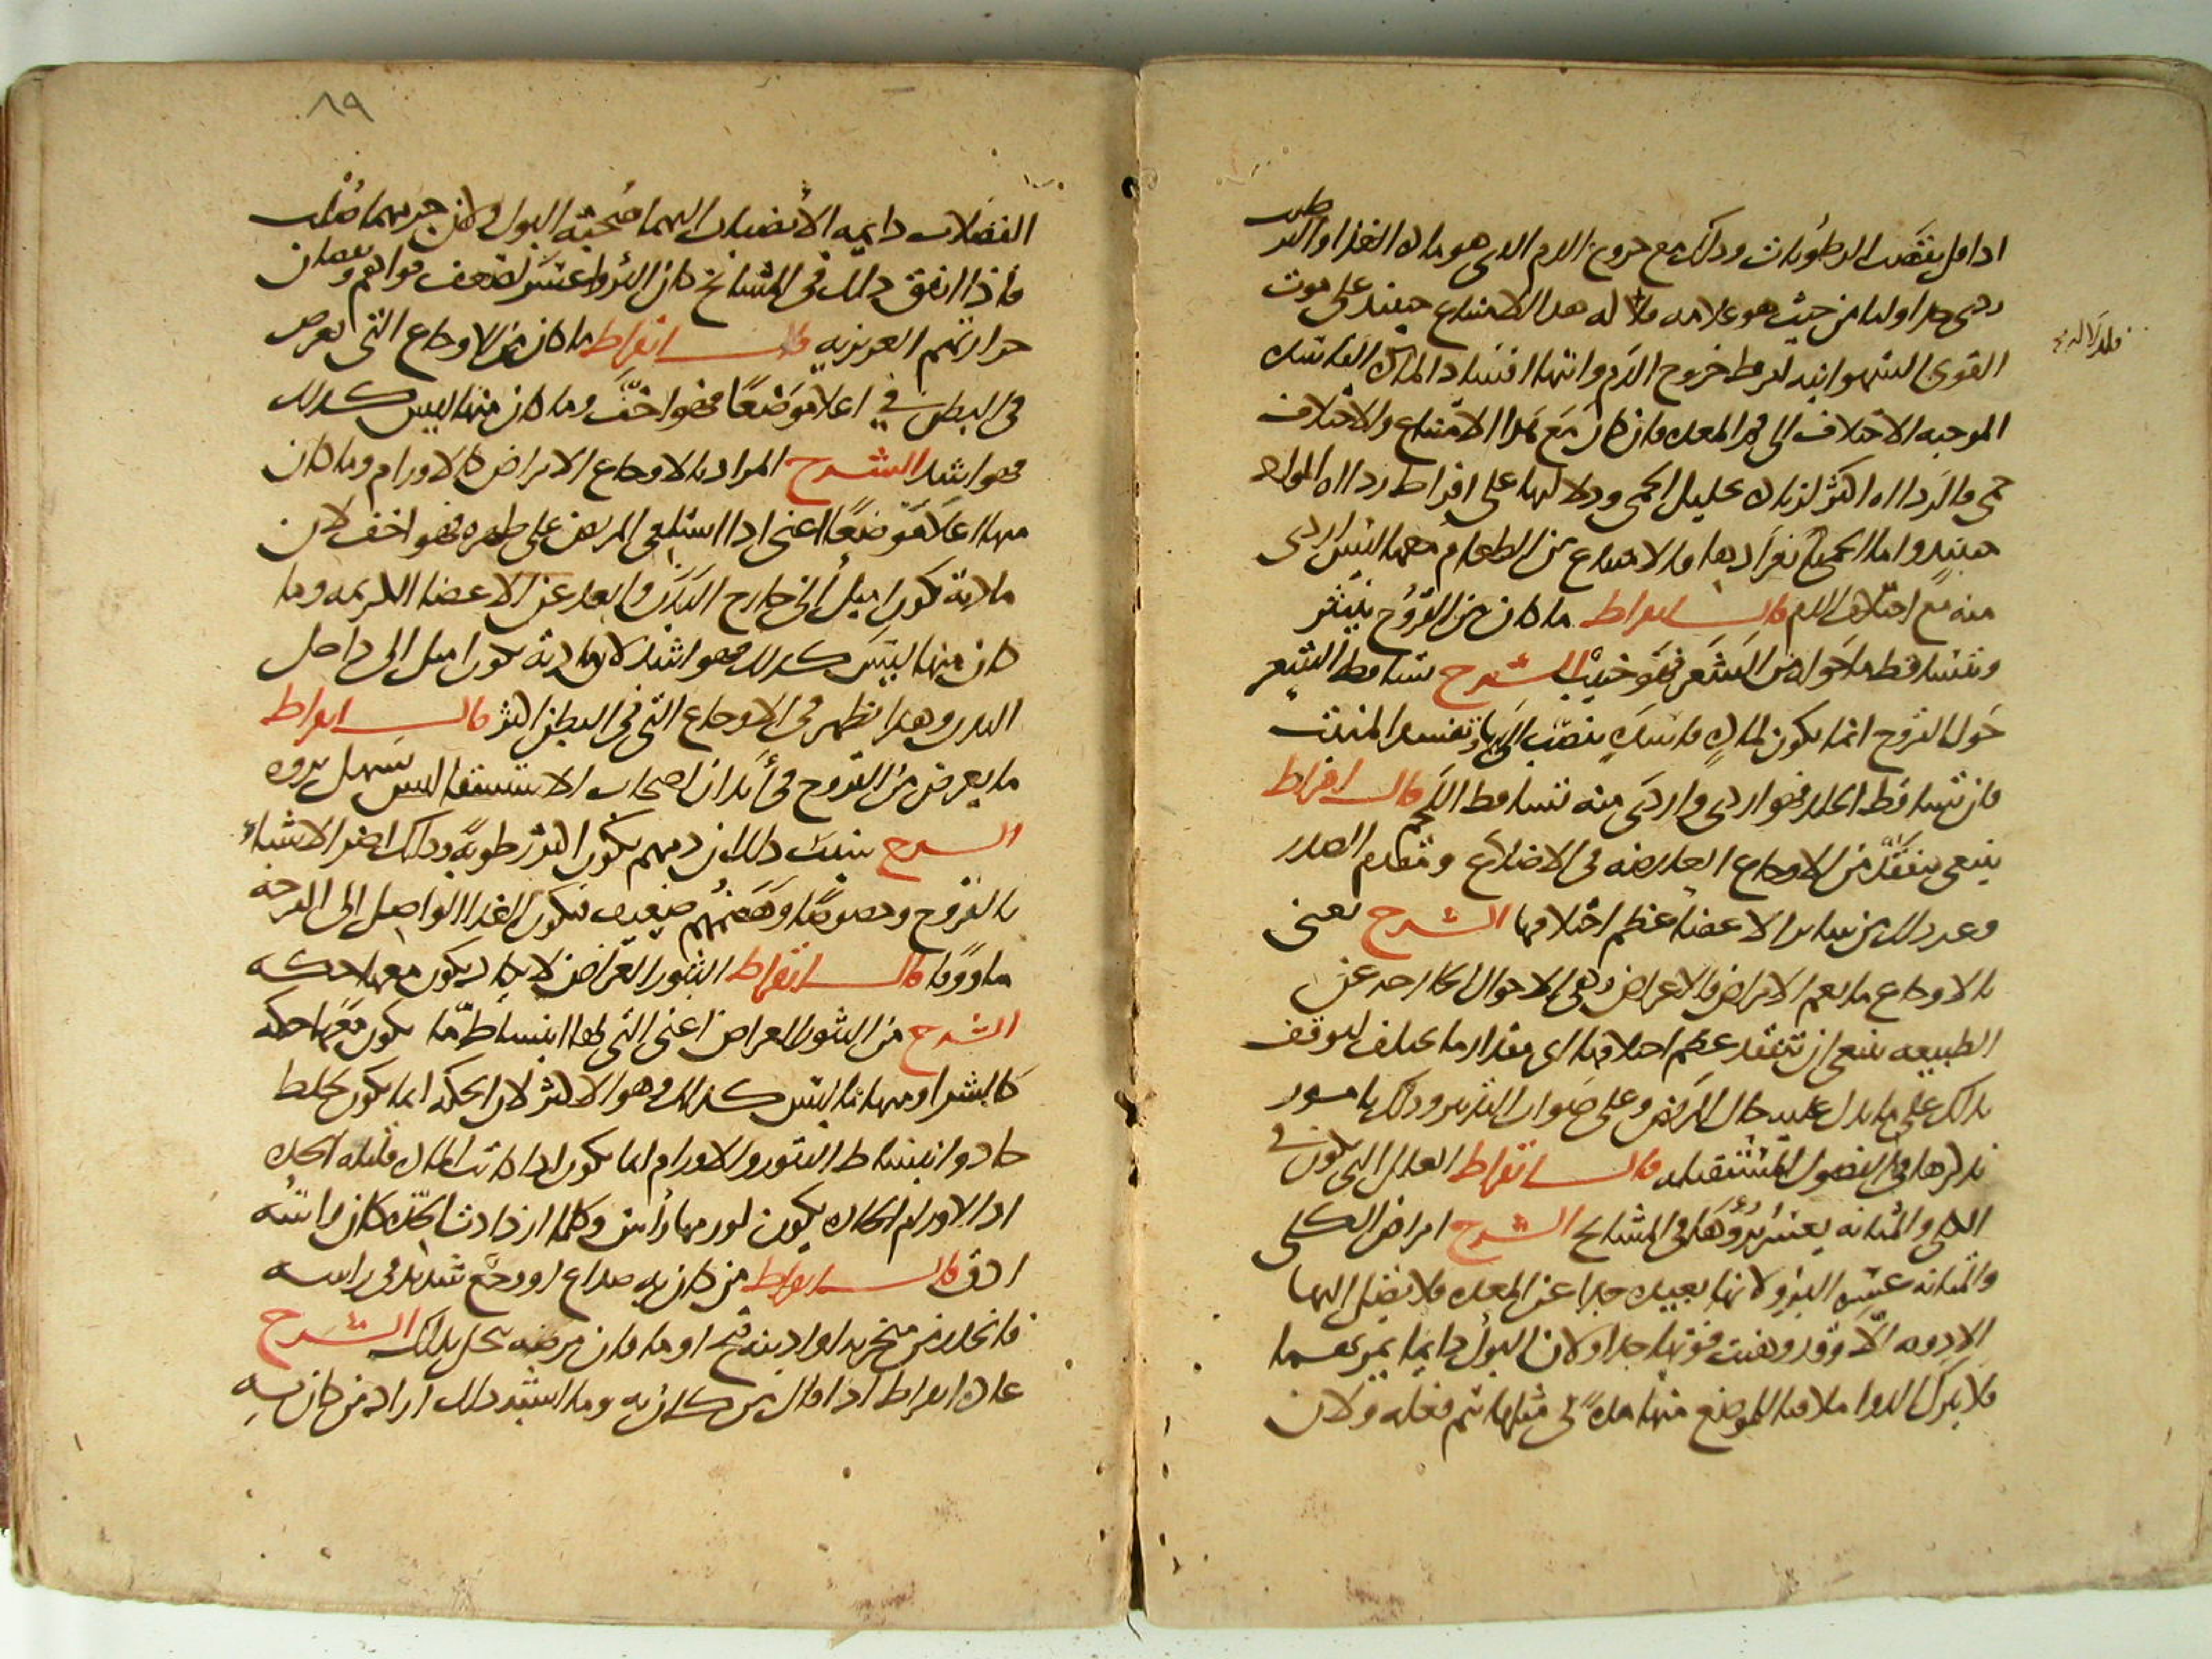 اذا قل نقصت الرطوبات وذلك مع خروج الدم الذي هو مادة الغذاء والبدن
ردي جدا اولا من حيث هو علامة فلدلالة هذا الامتناع حينئذ على موت
فلدلالة
القوى الشهوانية لفرط خروج الدم وانتهاء افساد المادة الفاسدة
الموجبة الاختلاف الى فم المعدة فان كان مع هذا الامتناع والاختلاف
حمى فالرداءة اكثر لزيادة تحليل الحمى ودلالتها على افراط رداءة المواد
حينئذ واما الحمى بانفرادها فالامتناع من الطعام معها ليس بردي
منه مع اختلاف الدم قال ابقراط ما كان من القروح ينتثر
ويتساقط ما حوله من الشعر فهو خبيث الشرح تساقط الشعر
حول القروح انما يكون لمادة فاسدة ينصب اليها وتفسد المنبت
فان تساقط الجلد فهو اردى واردى منه تساقط اللحم قال ابقراط
ينبغي يتفقد من الاوجاع العارضة في الاضلاع ومقدم الصدر
وغير ذلك من سائر الاعضا عظم اختلافها الشرح يعني
بالاوجاع ما يعم الامراض والاعراض وهي الاحوال الخارجة عن
الطبيعة ينبغي ان تتفقد عظم اختلافها اي مقدار ما يختلف ليوقف
بذلك على ما يدل عليه حال المرض وعلى صواب التدبير وذلك بامور
نذكرها في الفصول المستقبلة قال ابقراط العلل التي تكون في
الكلى والمثانة يعسر برؤها في المشايخ الشرح امراض الكلى
والمثانة عسرة البرؤ لانها بعيدة جدا عن المعدة فلا تصل اليها
الادوية الا وقد وهنت قوتها جدا ولان البول دايما يمر بهما
فلا يترك الدوا ملاقيا للموضع منها مدة في مثلها يتم فعله ولان
٨٩
الفضلات دايمة الانصباب اليهما صحبة البول ولان جرمهما صلب
فاذا اتفق ذلك في المشايخ كان البرؤ اعسر لضعف قواهم ونقصان
حرارتهم الغريزية قال ابقراط ما كان من الاوجاع التي تعرض
في البطن في اعلا موضعا فهو اخف وما كان منها ليس كذلك
فهو اشد الشرح المراد بالاوجاع الامراض كالاورام وما كان
منها اعلا موضعا اعني اذا استلقى المريض على ظهره فهو اخف لان
مادته تكون اميل الى خارج البدن وابعد عن الاعضا الكريمة وما
كان منها ليس كذلك فهو اشد لان مادته تكون اميل الى داخل
البدن وهذا يظهر في الاوجاع التي في البطن اكثر قال ابقراط
ما يعرض من القروح في ابدان اصحاب الاستسقا ليس يسهل بروه
الشرح سبب ذلك ان دمهم يكون اكثر رطوبة وذلك اضر الاشياء
بالقروح وخصوصا وهضمهم ضعيف فيكون الغذا الواصل الى القرحة
ماووفا قال ابقراط البثور العراض لا يكاد يكون معها حكة
الشرح من البثور العراض اعني التي لها انبساط ما يكون معها حكة
كالشرا ومنها ما ليس كذلك وهو الاكثر لان الحكة انما تكون لخلط
حاد وانبساط البثور والاورام انما يكون اذا كانت المادة قليلة الحدة
اذ الاورام الحادة يكون لورمها راس وكلما ازدادت الحدة كان راسه
ادق قال ابقراط من كان به صداع او وجع شديد في راسه
فانحدر من منخريه او اذنيه قيح او ما فان مرضه ينحل بذلك الشرح
عادة ابقراط اذا قال من كان به وما اشبه ذلك اراد من كان به